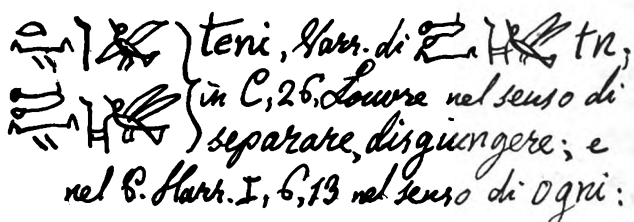 teni, Varr. di tn,
in C, 26, Louvre nel senso di
separare, disgiungere; e
nel P. Harr. I, 6, 13 nel senso di ogni: